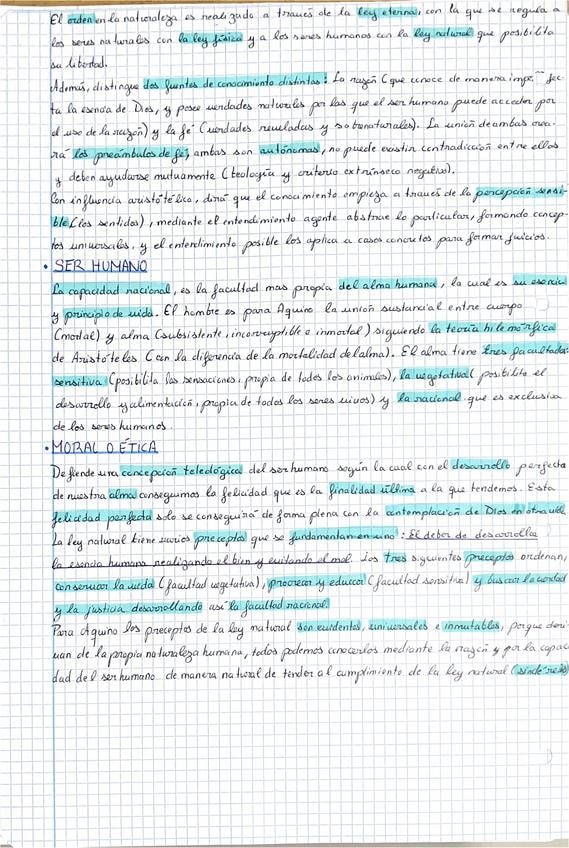 El orden en la naturaleza es realizado a través de la ley eterna, con la que se regula a
los seres naturales con la ley física y a los seres humanos con la ley natural que posibilita
su libertad.
Además, distingue dos fuentes de conocimiento distintas: La razón (que conoce de manera imperfec-
ta la esencia de Dios, y posee verdades naturales por las que el ser humano puede acceder por
el uso de la razón) y la fé (verdades reveladas y sobrenaturales). La unión de ambas crea-
rá los preámbulos de fé, ambas son autónomas, no puede existir contradicción entre ellas
y deben ayudarse mutuamente (teología y criterio extrínseco negativo).
Con influencia aristotélica, dirá que el conocimiento empieza a través de la percepción sensi-
ble (los sentidos), mediante el entendimiento agente abstrae lo particular, formando concep-
tos universales, y el entendimiento posible los aplica a casos concretos para formar juicios.
• SER HUMANO
La capacidad racional, es la facultad mas propia del alma humana, la cual es su esencia
y principio de vida. El hombre es para Aquino la unión sustancial entre cuerpo
(mortal) y alma (subsistente, incorruptible e inmortal) siguiendo la teoría hilemórfica
de Aristóteles (con la diferencia de la mortalidad del alma). El alma tiene tres facultades:
sensitiva (posibilita las sensaciones, propia de todos los animales), la vegetativa (posibilita el
desarrollo y alimentación, propia de todos los seres vivos) y la racional que es exclusiva
de los seres humanos.
• MORAL O ÉTICA
Defiende una concepción teleológica del ser humano según la cual con el desarrollo perfecto
de nuestra alma conseguimos la felicidad que es la finalidad última a la que tendemos. Esta
felicidad perfecta solo se conseguirá de forma plena con la contemplación de Dios en otra vida.
La ley natural tiene varios preceptos que se fundamentan en uno: El deber de desarrollar
la esencia humana realizando el bien y evitando el mal. Los tres siguientes preceptos ordenan,
conservar la vida (facultad vegetativa), procrear y educar (facultad sensitiva) y buscar la verdad
y la justicia desarrollando así la facultad racional.
Para Aquino los preceptos de la ley natural son evidentes, universales e inmutables, porque deri-
van de la propia naturaleza humana, todos podemos conocerlos mediante la razón y por la capaci-
dad del ser humano de manera natural de tender al cumplimiento de la ley natural (sindéresis)